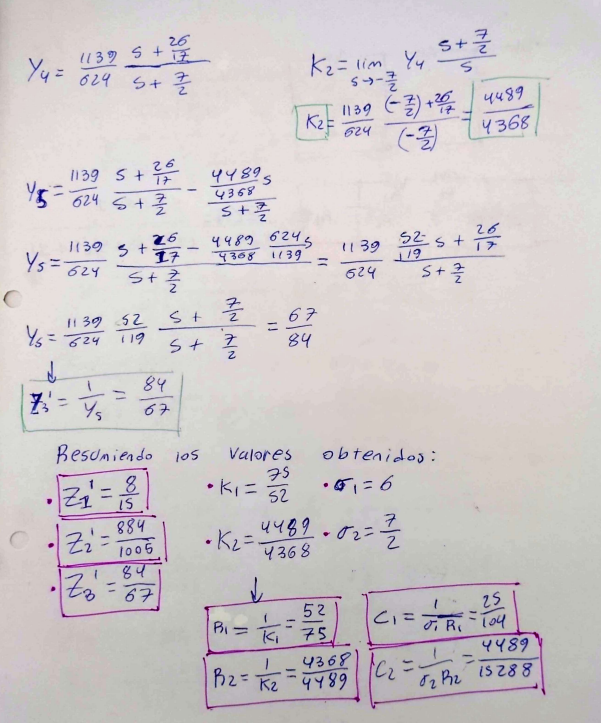 Y4 = 1139/624 (s + 26/17)/(s + 7/2)
K2 = lim s→-7/2 Y4 (s + 7/2)/s
K2 = 1139/624 ((-7/2) + 26/17)/(-7/2) = 4489/4368
Y5 = 1139/624 (s + 26/17)/(s + 7/2) - (4489/4368 s)/(s + 7/2)
Y5 = 1139/624 (s + 26/17 - 4489/4368 624/1139 s)/(s + 7/2) = 1139/624 (52/119 s + 26/17)/(s + 7/2)
Y5 = 1139/624 52/119 (s + 7/2)/(s + 7/2) = 67/84
↓
Z3' = 1/Y5 = 84/67
Resumiendo los valores obtenidos:
• Z1' = 8/15 • K1 = 75/52 • σ1 = 6
• Z2' = 884/1005 • K2 = 4489/4368 • σ2 = 7/2
• Z3' = 84/67
↓
R1 = 1/K1 = 52/75 C1 = 1/(σ1 R1) = 25/104
R2 = 1/K2 = 4368/4489 C2 = 1/(σ2 R2) = 4489/15288